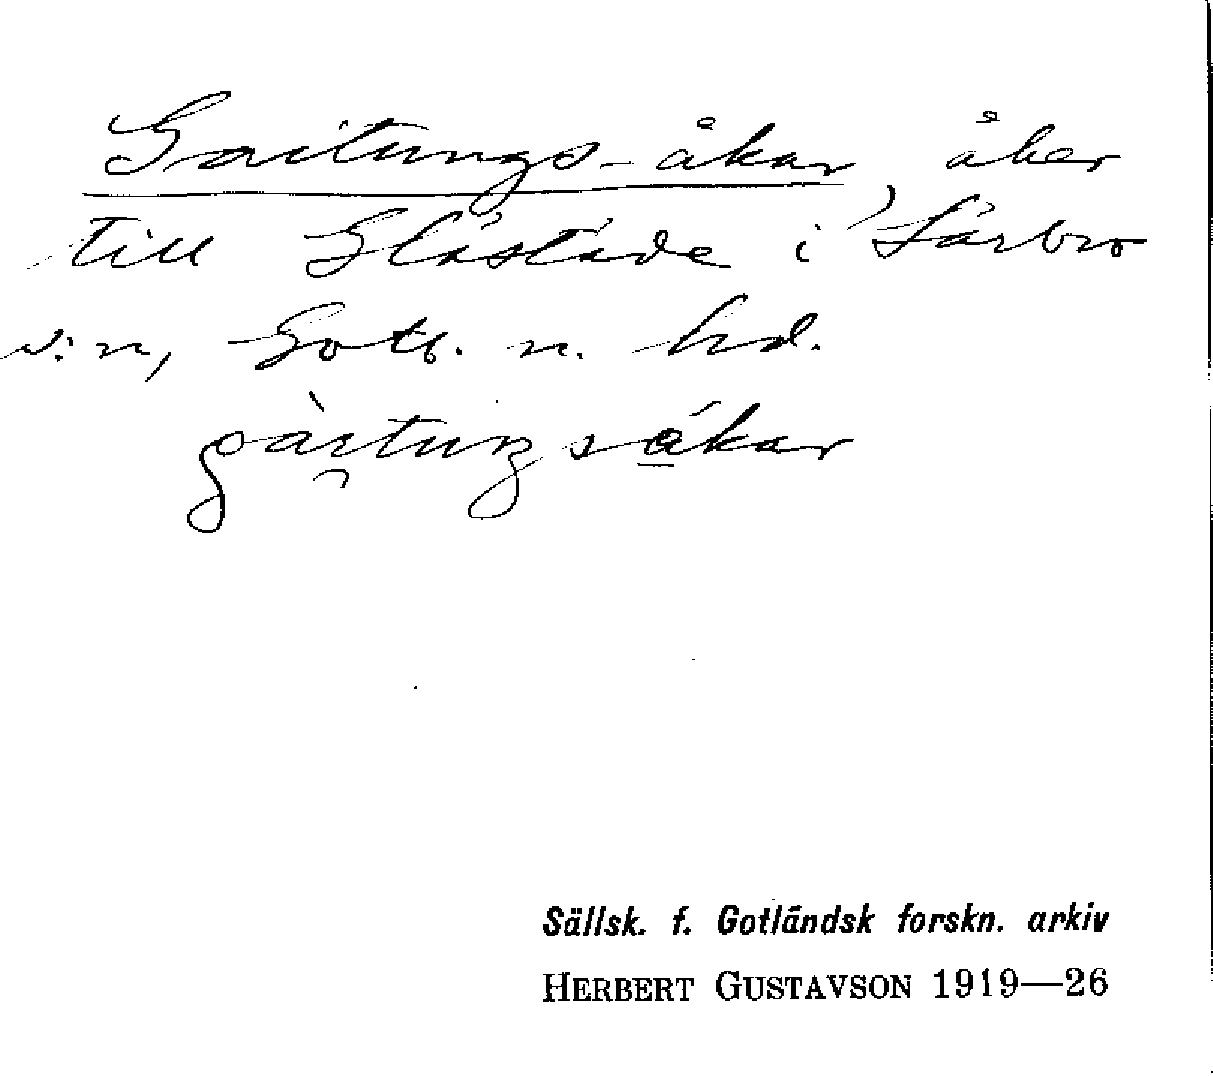 Gaitungs-åkar, åker
till Glästäde i Lärbro
s:n, Gotl. n. hd.
Sällsk. f. Gotländsk forskn. arkiv
HERBERT GUSTAVSON 1919—26